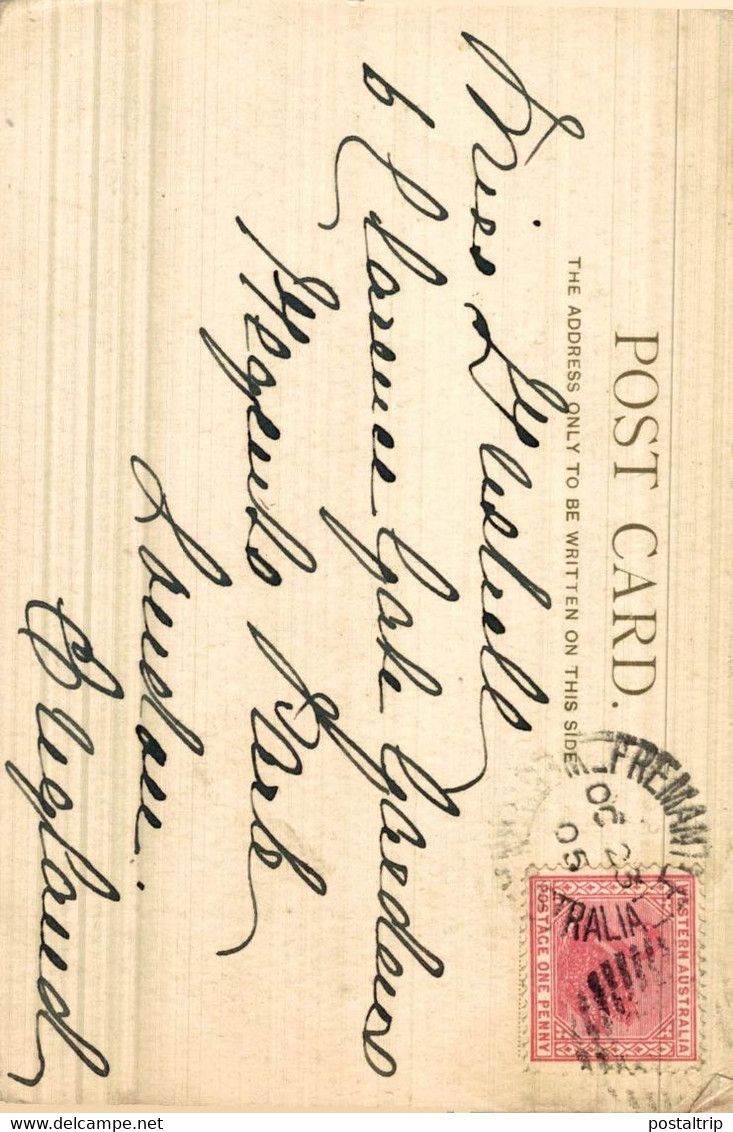 POST CARD.
THE ADDRESS ONLY TO BE WRITTEN ON THIS SIDE
FREMANT
OC 23
05
TRALIA
WESTERN AUSTRALIA
POSTAGE ONE PENNY
Miss
6 Clarence Gate Gardens
Regents Park
London.
England
postaltrip